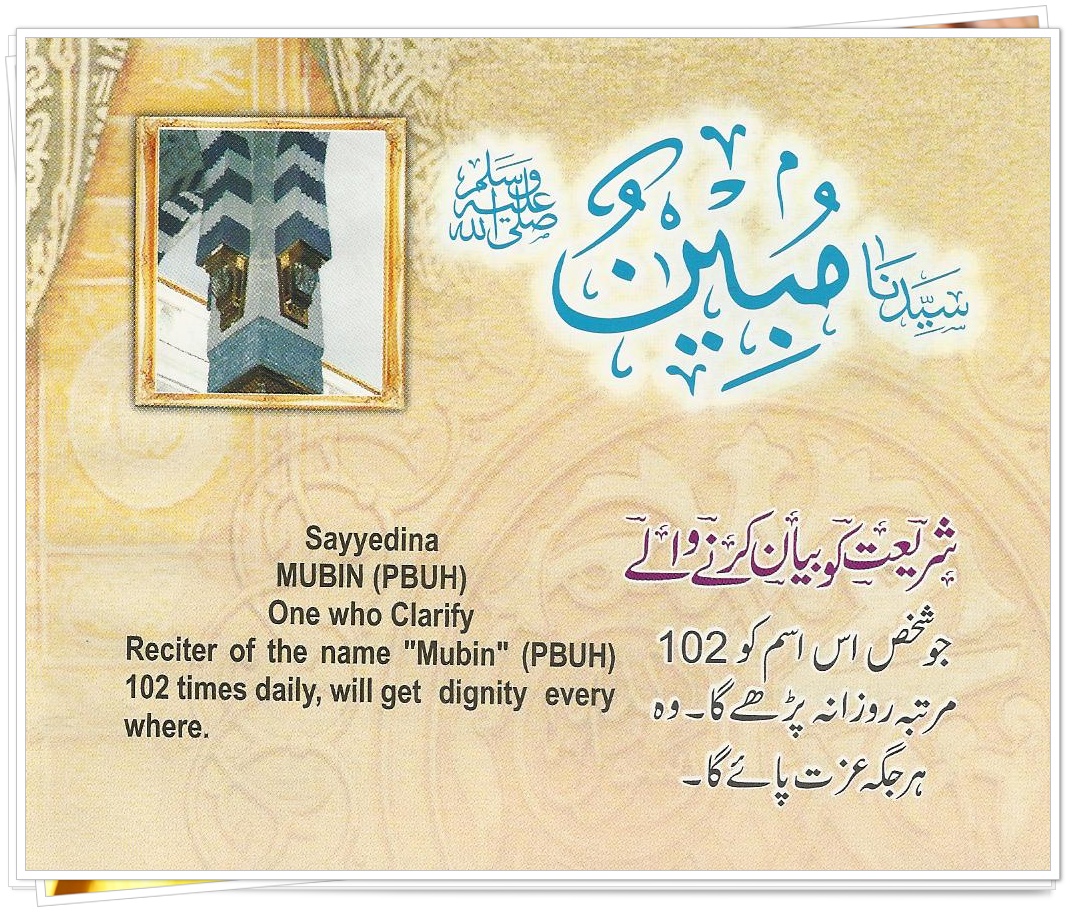 سَيِّدَنَا مُبِيْنٌ
صلى الله عليه وسلم
Sayyedina
MUBIN (PBUH)
One who Clarify
Reciter of the name "Mubin" (PBUH)
102 times daily, will get dignity every
where.
شریعت کو بیان کرنے والے
جو شخص اس اسم کو 102
مرتبہ روزانہ پڑھے گا۔ وہ
ہر جگہ عزت پائے گا۔